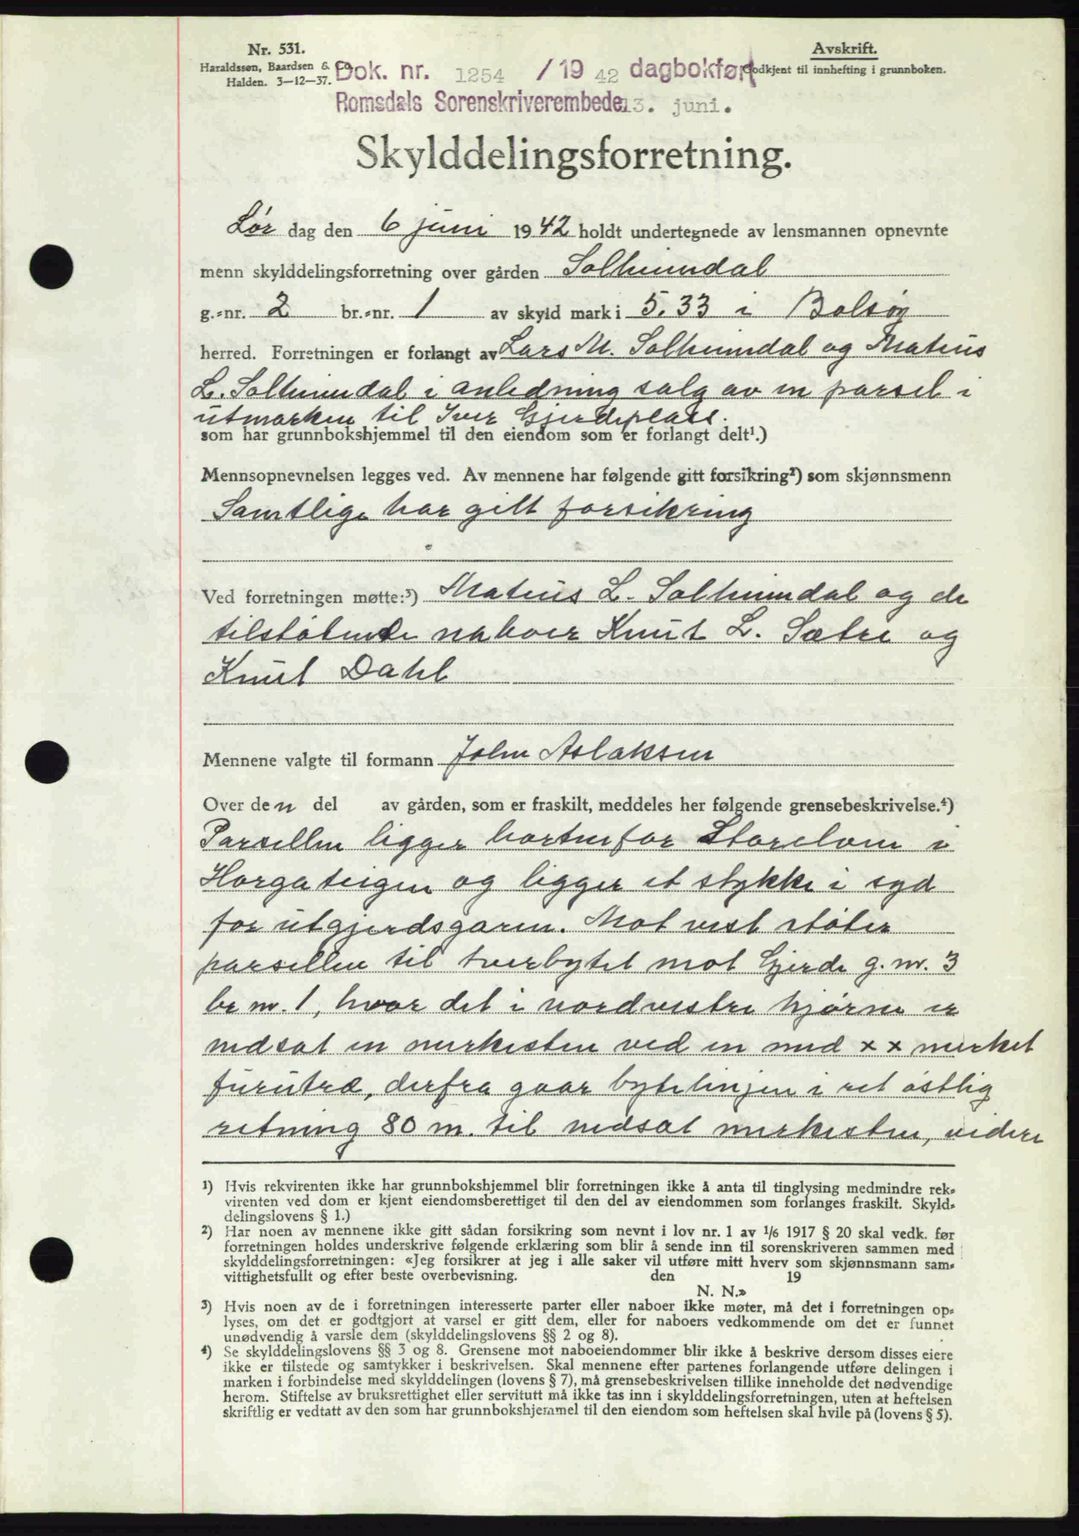 Nr. 531.
Haraldssøn, Baardsen & Co.
Halden. 3—12—37.
Avskrift.
Godkjent til innhefting i grunnboken.
Dok. nr. 1254 / 19 42 dagbokført
Romsdals Sorenskriverembede 13. juni.
Skylddelingsforretning.
Lør dag den 6 juni 1942 holdt undertegnede av lensmannen opnevnte
menn skylddelingsforretning over gården Solheimdal
g.-nr. 2 br.-nr. 1 av skyld mark i 5.33 i Bolsøy
herred. Forretningen er forlangt av Lars M. Solheimdal og Mateus
L. Solheimdal i anledning salg av en parsel i
utmarken til Iver Gjerdeplass.
som har grunnbokshjemmel til den eiendom som er forlangt delt¹.)
Mennsopnevnelsen legges ved. Av mennene har følgende gitt forsikring²) som skjønnsmenn
Samtlige har gitt forsikring
Ved forretningen møtte:³) Mateus L. Solheimdal og de
tilstøtende naboer Knut L. Sætre og
Knut Dahl
Mennene valgte til formann John Aslaksen
Over den del av gården, som er fraskilt, meddeles her følgende grensebeskrivelse.⁴)
Parsellen ligger bortenfor Storelven i
Horgateigen og ligger et stykke i syd
for utgjerdsgaren. Mot vest støter
parsellen til tverbytet mot Gjerde g. nr. 3
br nr. 1, hvor det i nordvestre hjørne er
nedsat en merkesten ved en med x x merket
furutræ, derfra gaar bytelinjen i ret østlig
retning 80 m. til nedsat merkesten, videre
¹) Hvis rekvirenten ikke har grunnbokshjemmel blir forretningen ikke å anta til tinglysing medmindre rek-
virenten ved dom er kjent eiendomsberettiget til den del av eiendommen som forlanges fraskilt. Skyld-
delingslovens § 1.)
²) Har noen av mennene ikke gitt sådan forsikring som nevnt i lov nr. 1 av 1/6 1917 § 20 skal vedk. før
forretningen holdes underskrive følgende erklæring som blir å sende inn til sorenskriveren sammen med
skylddelingsforretningen: «Jeg forsikrer at jeg i alle saker vil utføre mitt hverv som skjønnsmann sam-
vittighetsfullt og efter beste overbevisning. den 19
N. N.»
³) Hvis noen av de i forretningen interesserte parter eller naboer ikke møter, må det i forretningen op-
lyses, om det er godtgjort at varsel er gitt dem, eller for naboers vedkommende om det er funnet
unødvendig å varsle dem (skylddelingslovens §§ 2 og 8).
⁴) Se skylddelingslovens §§ 3 og 8. Grensene mot naboeiendommer blir ikke å beskrive dersom disses eiere
ikke er tilstede og samtykker i beskrivelsen. Skal mennene efter partenes forlangende utføre delingen i
marken i forbindelse med skylddelingen (lovens § 7), må grensebeskrivelsen tillike inneholde det nødvendige
herom. Stiftelse av bruksrettighet eller servitutt må ikke tas inn i skylddelingsforretningen, uten at heftelsen
skriftlig er vedtatt av den som har grunnbokshjemmel til den eiendom som heftelsen skal hvile på (lovens § 5).